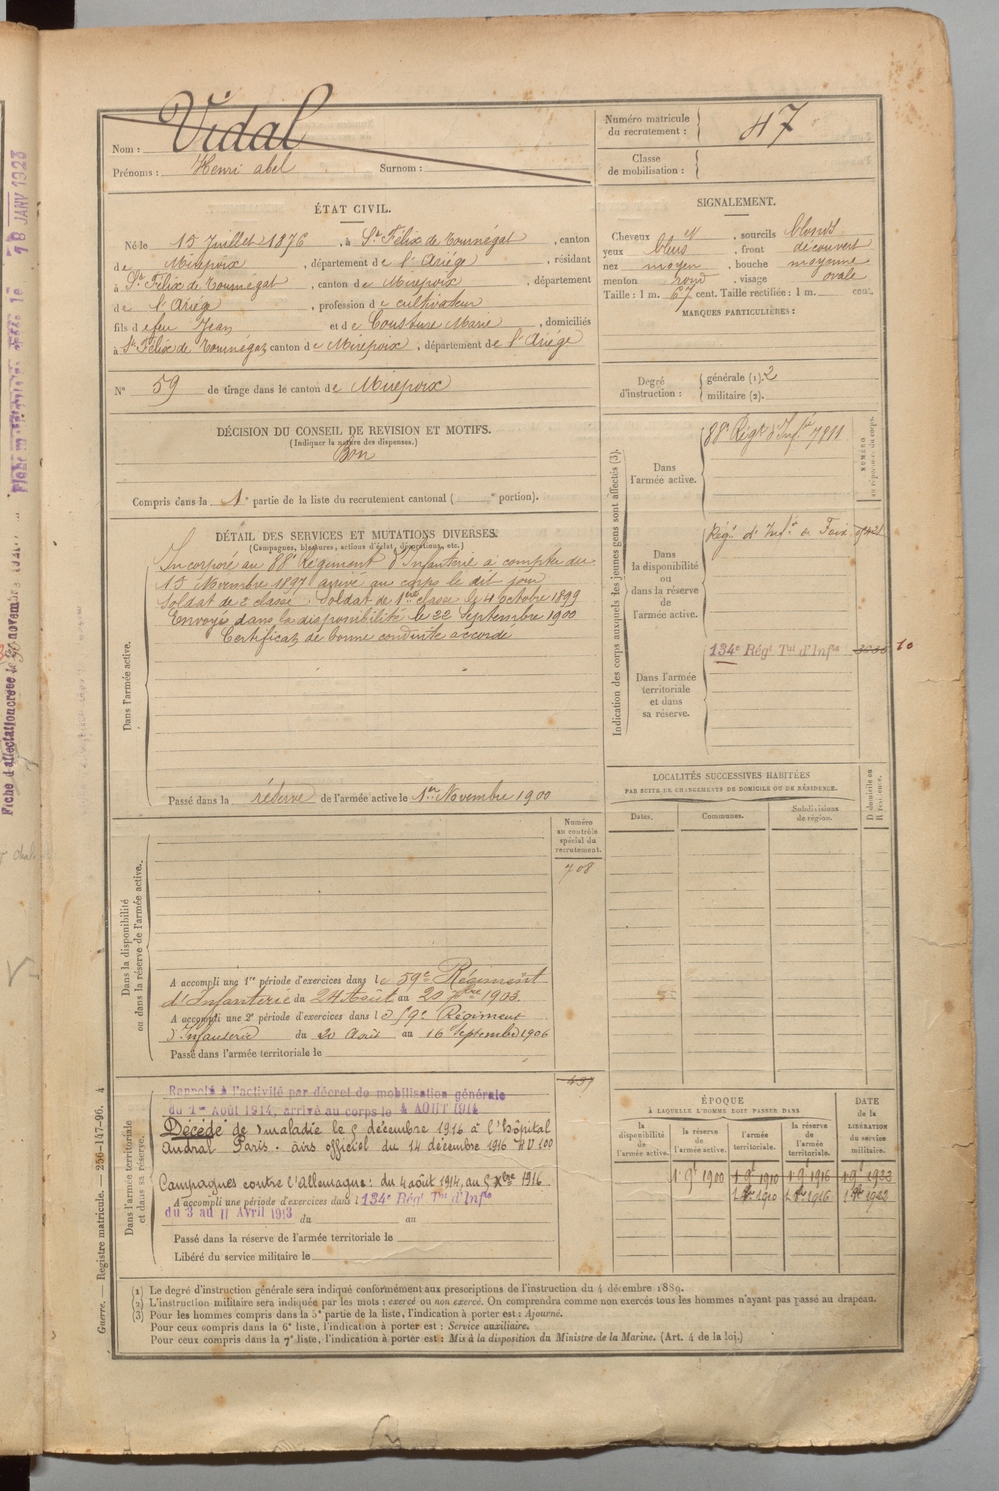 Nom : Vidal
Prénoms : Henri abel Surnom :
Numéro matricule du recrutement : 47
Classe de mobilisation :
ÉTAT CIVIL.
Né le 15 Juillet 1876, à St Félix de Tournégat, canton
de Mirepoix, département de l'Ariége, résidant
à St Félix de Tournégat, canton de Mirepoix, département
de l'Ariége, profession de cultivateur
fils de feu Jean et de Cousture Marie, domiciliés
à St Félix de Tournégat canton de Mirepoix, département de l'Ariége
N° 59 de tirage dans le canton de Mirepoix
SIGNALEMENT.
Cheveux et, sourcils blonds
yeux bleus, front découvert
nez moyen, bouche moyenne
menton rond, visage ovale
Taille : 1 m. 67 cent. Taille rectifiée : 1 m. cent.
MARQUES PARTICULIÈRES :
Degré d'instruction : générale (1). 2
militaire (2).
DÉCISION DU CONSEIL DE REVISION ET MOTIFS.
(Indiquer la nature des dispenses.)
Bon
Compris dans la 1e partie de la liste du recrutement cantonal ( e portion).
DÉTAIL DES SERVICES ET MUTATIONS DIVERSES.
(Campagnes, blessures, actions d'éclat, décorations, etc.)
Dans l'armée active.
Incorporé au 88e Régiment d'Infanterie à compter du
15 Novembre 1897 arrivé au corps le dit jour
Soldat de 2e classe. Soldat de 1ère classe le 4 Octobre 1899
Envoyé dans la disponibilité le 22 Septembre 1900
Certificat de bonne conduite accordé
Passé dans la réserve de l'armée active le 1er Novembre 1900
Indication des corps auxquels les jeunes gens sont affectés (3).
NUMÉRO au répertoire du corps.
Dans l'armée active.
88e Régt d'Inftie 7811
Dans la disponibilité ou dans la réserve de l'armée active.
Régt d'Inftie de Foix
Dans l'armée territoriale et dans sa réserve.
134e Régt Tal d'Infie
10
LOCALITÉS SUCCESSIVES HABITÉES
PAR SUITE DE CHANGEMENTS DE DOMICILE OU DE RÉSIDENCE.
Dates. Communes. Subdivisions de région. D domicile ou R résidence.
Dans la disponibilité ou dans la réserve de l'armée active.
Numéro au contrôle spécial du recrutement.
708
A accompli une 1re période d'exercices dans le 59e Régiment
d'Infanterie du 24 Août au 20 7bre 1903.
A accompli une 2e période d'exercices dans le 59e Régiment
d'Infanterie du 20 Août au 16 Septembre 1906
Passé dans l'armée territoriale le
Dans l'armée territoriale et dans sa réserve.
Rappelé à l'activité par décret de mobilisation générale
du 1er Août 1914, arrivé au corps le 4 AOUT 1914
Décédé de maladie le 5 décembre 1916 à l'hôpital
Andral Paris. avis officiel du 14 décembre 1916
Campagnes contre l'Allemagne : du 4 août 1914, au 5 Xbre 1916
A accompli une période d'exercices dans : 134e Régt Tal d'Infie
du 3 au 11 Avril 1913 du au
Passé dans la réserve de l'armée territoriale le
Libéré du service militaire le
ÉPOQUE
À LAQUELLE L'HOMME DOIT PASSER DANS
la disponibilité de l'armée active. la réserve de l'armée active. l'armée territoriale. la réserve de l'armée territoriale.
DATE de la LIBÉRATION du service militaire.
1 9bre 1900 1 9bre 1910 1 9bre 1916 1 9bre 1922
1 8bre 1910 1 8bre 1916 1 8bre 1922
(1) Le degré d'instruction générale sera indiqué conformément aux prescriptions de l'instruction du 4 décembre 1889.
(2) L'instruction militaire sera indiquée par les mots : exercé ou non exercé. On comprendra comme non exercés tous les hommes n'ayant pas passé au drapeau.
(3) Pour les hommes compris dans la 5e partie de la liste, l'indication à porter est : Ajourné.
Pour ceux compris dans la 6e liste, l'indication à porter est : Service auxiliaire.
Pour ceux compris dans la 7e liste, l'indication à porter est : Mis à la disposition du Ministre de la Marine. (Art. 4 de la loi.)
Guerre. — Registre matricule. — 256-147-96. 4
Fiche d'affectation créée le 30 novembre
18 JANV 1923